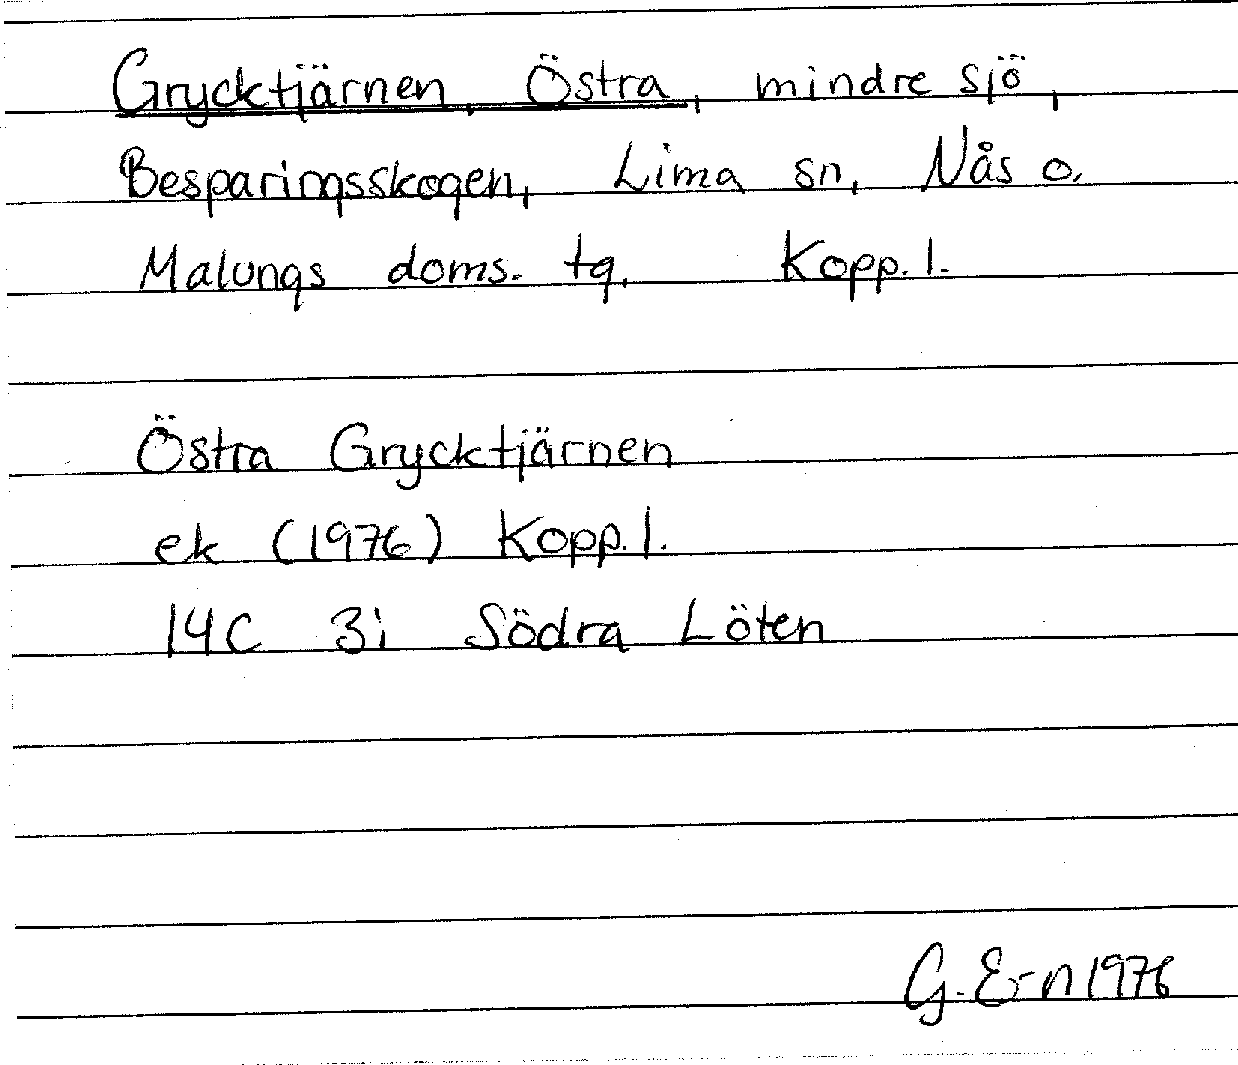 Grycktjärnen, Östra, mindre sjö,
Besparingsskogen, Lima sn, Nås o.
Malungs doms. tg, Kopp. l.
Östra Grycktjärnen
ek (1976) Kopp. l.
14C 3i Södra Löten
G. E-n 1976